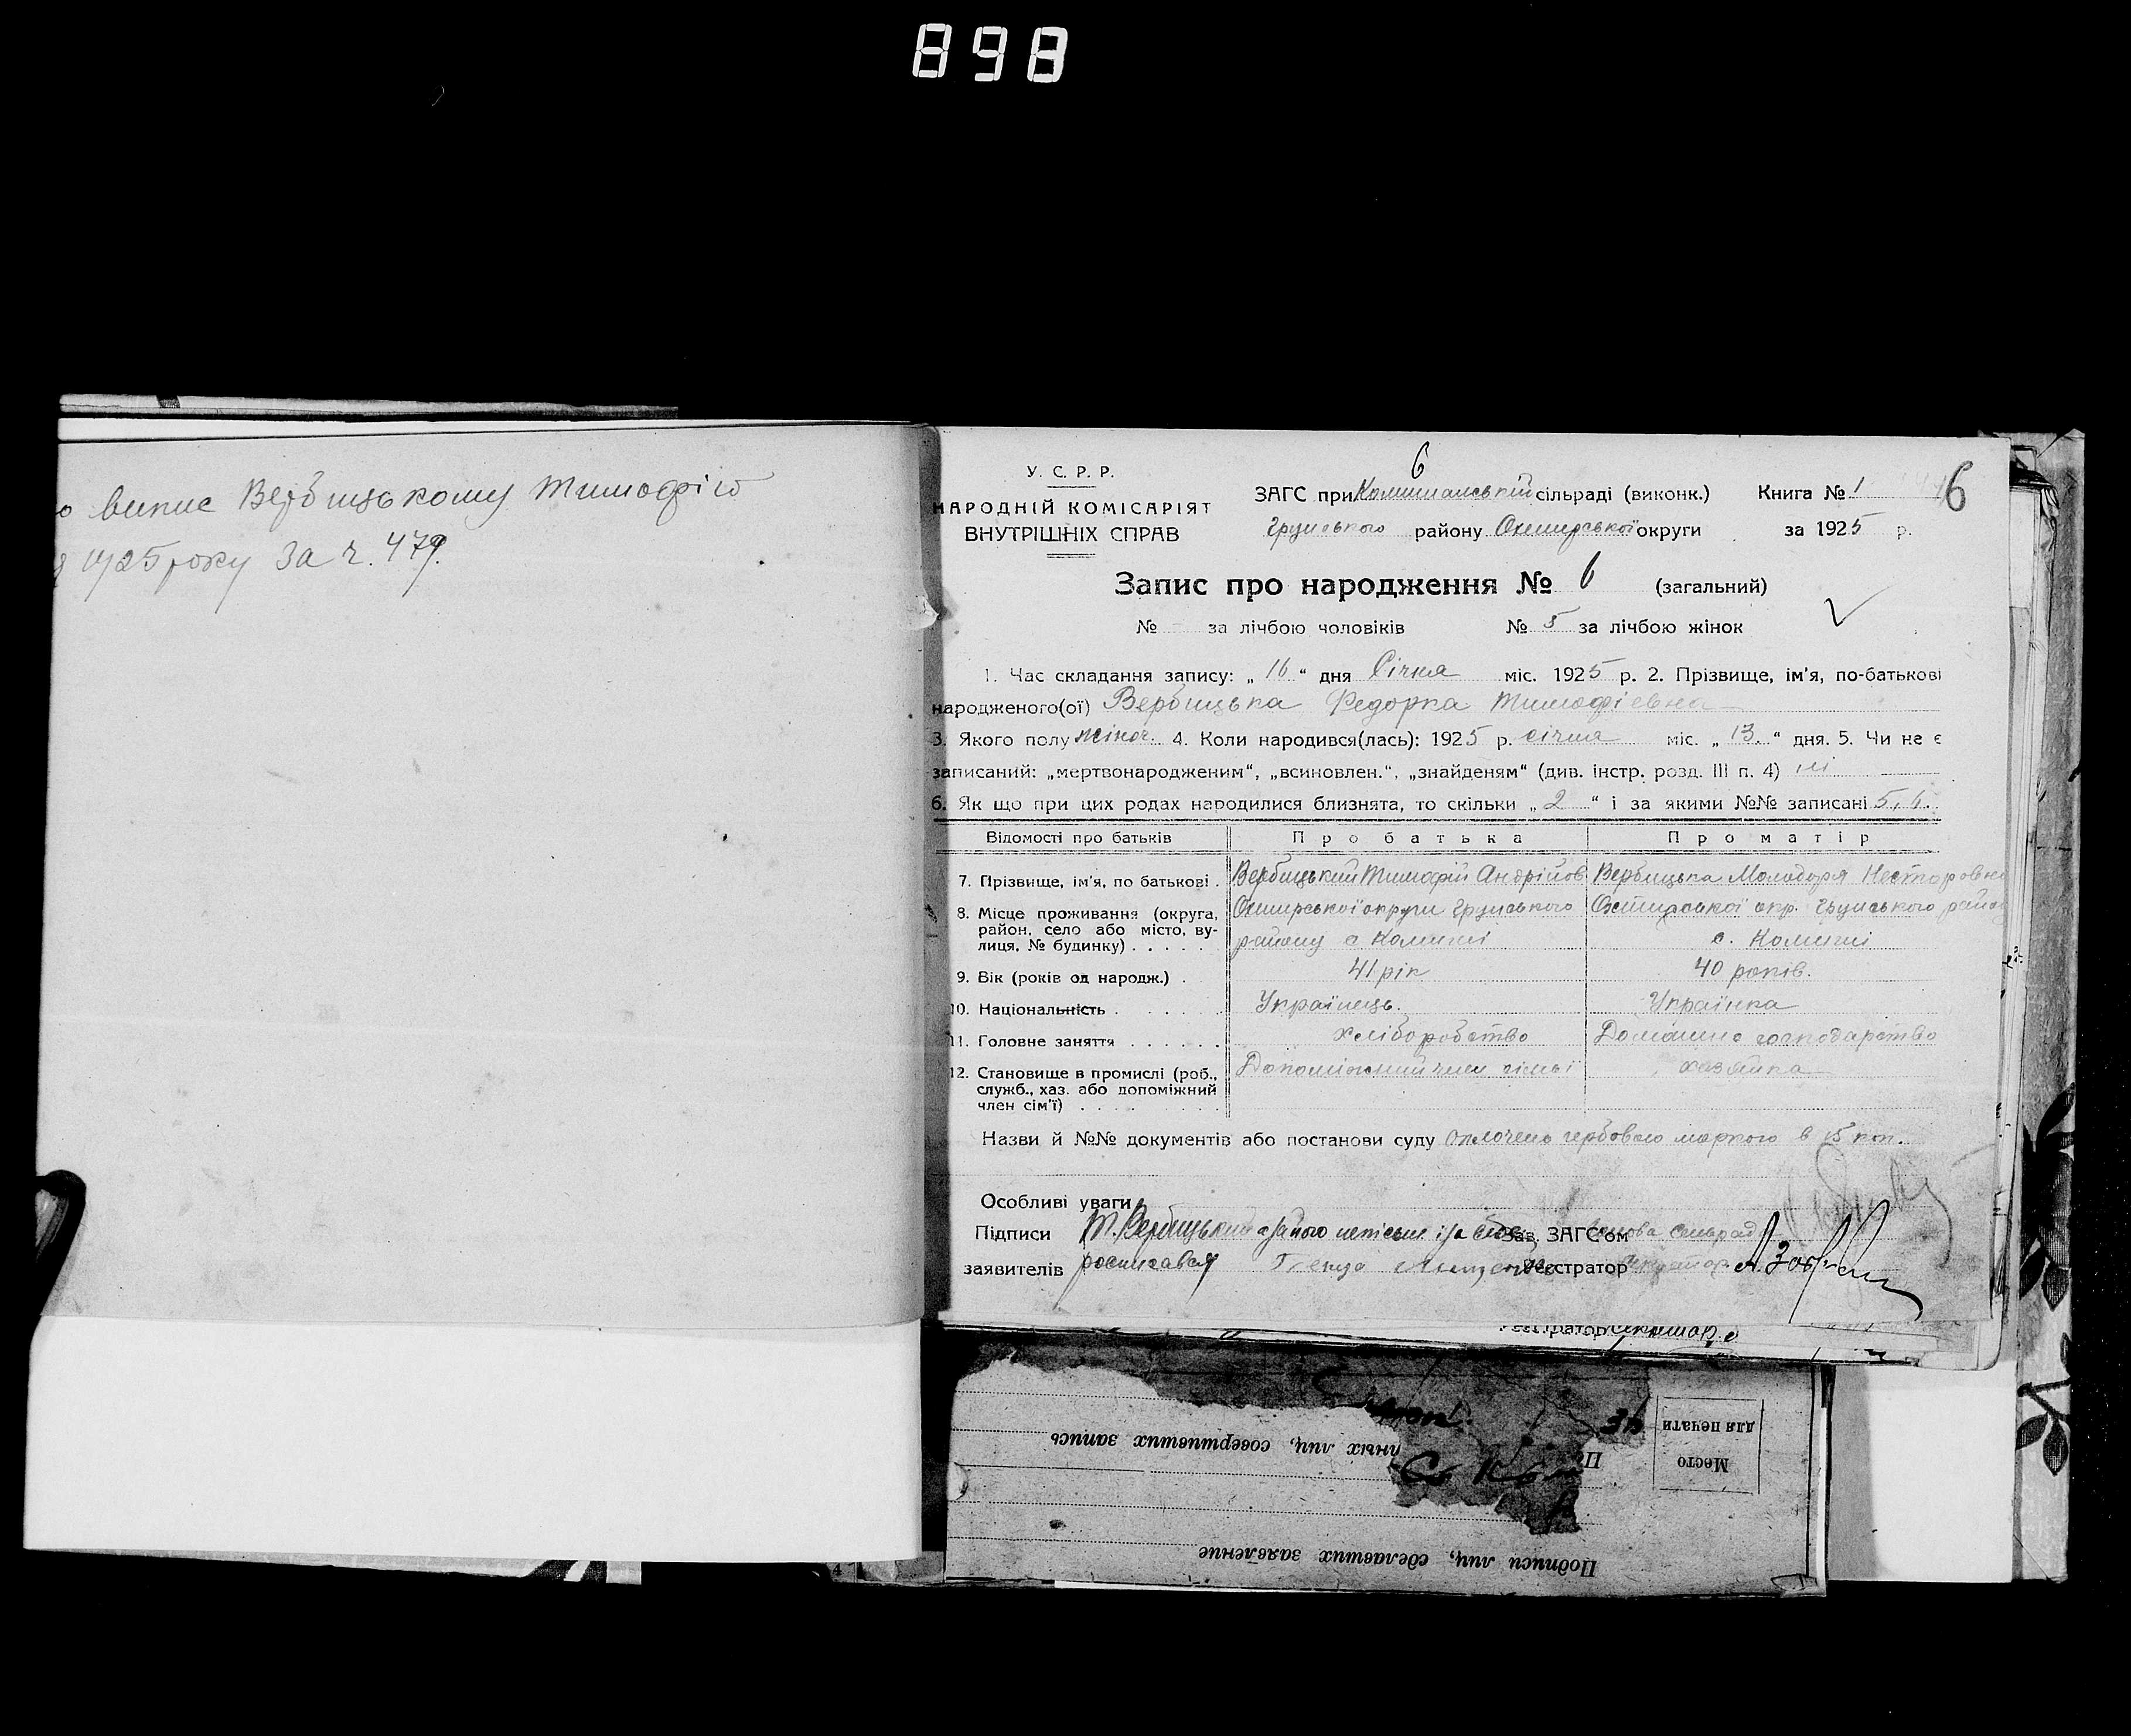 898
випис Вербицькому Тимофію
1925 року за ч. 479.
6
6
У. С. Р. Р.
НАРОДНІЙ КОМІСАРІЯТ
ВНУТРІШНІХ СПРАВ
ЗАГС при Комишанській сільраді (виконк.) Книга № 1
Грунського району Охтирської округи за 1925 р.
Запис про народження № 6 (загальний)
№ - за лічбою чоловіків № 5 за лічбою жінок
1. Час складання запису: „ 16 “ дня Січня міс. 1925 р. 2. Прізвище, ім'я, по-батькові
народженого(ої) Вербицька Федорка Тимофієвна
3. Якого полу жіноч. 4. Коли народився(лась): 1925 р. січня міс. „ 13. “ дня. 5. Чи не є
записаний: „мертвонародженим“, „всиновлен.“, „знайденям“ (див. інстр. розд. III п. 4) ні
6. Як що при цих родах народилися близнята, то скільки „ 2 “ і за якими №№ записані 5, 6.
Відомості про батьків Про батька Про матір
7. Прізвище, ім'я, по батькові . Вербицький Тимофій Андрійов Вербицька Молодора Несторовна
8. Місце проживання (округа, район, село або місто, вулиця, № будинку) . . . . . Охтирської округи Грунського Охтирської окр. Грунського району
району с Комиші с. Комиші
9. Вік (років од народж.) . 41 рік 40 років.
10. Національність . . . . . Українець. Українка
11. Головне заняття . . . . . . хліборобство Домашнє господарство
12. Становище в промислі (роб., служб., хаз. або допоміжний член сім'ї) . . . . Допоміжний член сімьї хазяйка
Назви й №№ документів або постанови суду оплочено гербовою маркою в 15 коп.
Особливі уваги
Підписи Т. Вербицький а за його неписьм Зав. ЗАГС'ом Голова сельрад
заявителів росписався Реєстратор Секретар
Реєстратор Секретар
Место
для печати
лных лиц, совершивших запись
Подписи лиц, сделавших заявление